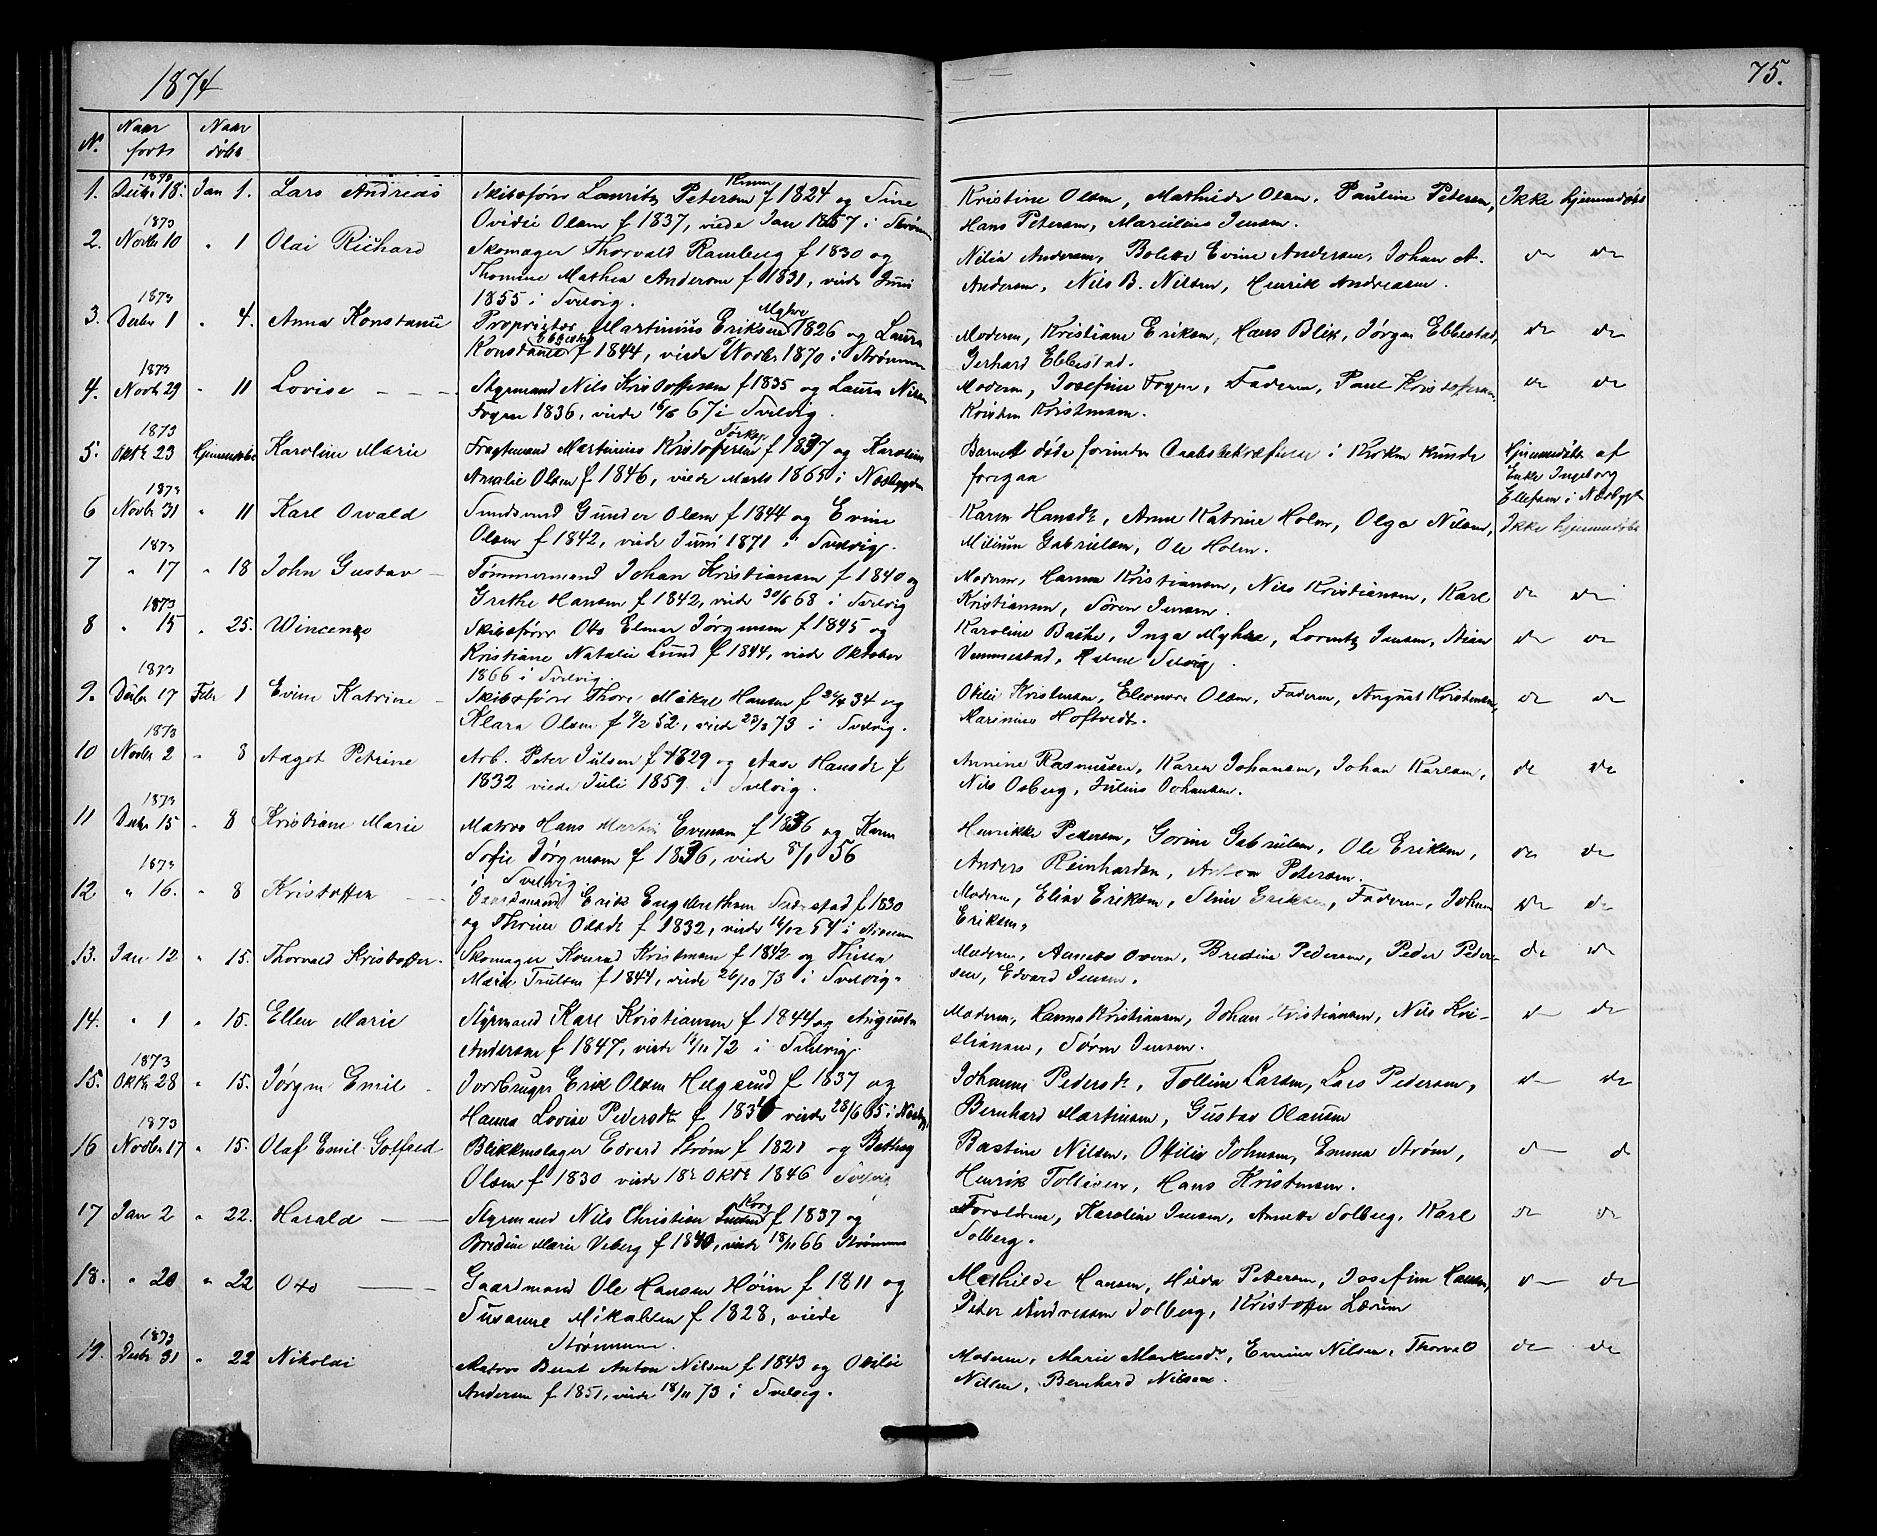 1874
75.
N. Naar født Naar døbt
1. 1873 Decbr 18. Jan 1. Lars Andreas Skibsfører Lauritz Petersen f 1824 og Sine
Ovidie Olsen f 1837, viede Jan 1857 i Strømm
Kristine Olsen, Mathilde Olsen, Pauline Petersen,
Hans Petersen, Marcelius Jensen.
Ikke hjemmedøbt
2. 1873 Novbr 10 " 1 Olai Richard Skomager Thorvald Ramberg f 1830 og
Thomine Mathea Andersen f 1831, viede Juni
1855 i Svelvig.
Nilia Andersen, Bolette Evine Andersen, Johan A.
Andersen, Nils B. Nilsen, Henrik Andreasen.
do do
3. 1873 Decbr 1 " 4. Anna Konstance Proprietær Martinius Eriksen Myhre 1826 og Laura
Konstance Ebbestad f 1844, viede Novbr 1870 i Strømmen
Moderen, Kristiane Eriksen, Hans Blik, Jørgen Ebbestad,
Gerhard Ebbestad.
do do
4. 1873 Novbr 29 " 11 Lovise Styrmand Nils Kristoffersen f 1835 og Laura Nilsen
Fogne 1836, viede 16/6 67 i Svelvig.
Moderen, Josefine Fogne, Faderen, Paul Kristoffersen,
Karsten Kristensen.
do do
5. 1873 Oktbr 23 Hjemmedøbt Karoline Marie Fragtemand Martinius Kristofersen Torkop f 1837 og Karoline
Amalie Olsen f 1846, viede Marts 1865 i Nesbygden
Barnet døde forinden Daabsbekræftelse i Kirken kunde
foregaa
Hjemmedøbt af
Enke Ingeborg
Ellefsen i Nesbygd
6 1873 Novbr 31 " 11 Karl Oswald Gunder Olsen f 1844 og Evine
Olsen f 1842, viede Juni 1871 i Svelvig.
Karen Hansdt, Anne Katrine Holm, Olga Nilsen,
Milium Gabrielsen, Ole Holm.
Ikke hjemmedøbt
7 1873 " 17 " 18 John Gustav Tømmermand Johan Kristiansen f 1840 og
Grethe Hansen f 1842, viede 30/6 68 i Svelvig
Moderen, Hanna Kristiansen, Nils Kristiansen, Karl
Kristiansen, Søren Jensen.
do do
8 1873 " 15 " 25. Wincens Skibsfører Oto Elmar Jørgensen f 1845 og
Kristiane Natalie Lund f 1844, viede Oktober
1866 i Svelvig.
Karoline Bache, Inga Myhre, Lorentz Jensen,
Vemmestad, Svelvig.
do do
9. 1873 Decbr 17 Febr 1 Evine Katrine Skibsfører Thore Mikal Hansen f 34 og
Klara Olsen f 52, viede 73 i Svelvig.
Otilie Kristensen, Eleonore Olsen, Faderen, August Kristensen,
Marinius Hoftvedt.
do do
10 1873 Novbr 2 " 8 Aagot Petrine Arb. Peter Julsen f 1829 og Aase Hansdt f
1832 viede Juli 1859 i Svelvig.
Annine Rasmussen, Karen Johansen, Johan Karlsen,
Nils Osberg, Julius Johansen.
do do
11 1873 Decbr 15 " 8 Kristiane Marie Matros Hans Martin Evensen f 1836 og Karen
Sofie Jørgensen f 1836, viede 56
i Svelvig
Henrikke Pedersen, Gorine Gabrielsen, Ole Eriksen,
Anders Reinhardsen, Anton Petersen.
do do
12. 1873 " 16. " 8 Kristoffer Gaardmand Erik Engebrethsen f 1830
og Thorine Olsdt f 1832, viede 54 i Strømm
Moderen, Eline Eriksen, Stine Eriksen, Faderen, Johan
Eriksen.
do do
13. Jan 12 " 15. Thorvald Kristoffer Skomager Konrad Kristensen f 1842 og Thrina
Marie Trulsen f 1844, viede 26/10 73 i Svelvig.
Moderen, Annette Oven, Bredine Pedersen, Peder Peder-
sen, Edvard Jensen.
do do
14. " 1 " 15. Ellen Marie Styrmand Karl Kristiansen f 1844 og Augusta
Andersen f 1847, viede 72 i Svelvig.
Moderen, Hanna Kristiansen, Johan Kristiansen, Nils Kri-
stiansen, Søren Jensen.
do do
15. 1873 Oktbr 28 " 15. Jørgen Emil Jordbruger Erik Olsen Helgerud f 1837 og
Hanna Lovise Pedersdt f 1836 viede 28/6 65 i Nesby.
Johanne Pedersdt, Folline Larsen, Lars Pedersen,
Bernhard Martinsen, Gustav Olausen
do do
16 1873 Novbr 17 " 15. Olaf Emil Gotfred Blikkenslager Edvard Strøm f 1821 og Bethzy
Olsen f 1830 viede 18 Oktbr 1846 Svelvig
Bastine Nilsen, Otilie Johnsen, Emma Strøm,
Henrik Tollisen, Hans Kristensen.
do do
17 Jan 2 " 22. Harald Styrmand Nils Christian Korg f 1837 og
Bredine Marie Veberg f 1840, viede 18/11 66 Strømmen
Forældrene, Karoline Jensen, Annette Solberg, Karl
Solberg.
do do
18. " 20 " 22 Oto Gaardmand Ole Hansen Høim f 1811 og
Susanne Mikalsen f 1828, viede
Strømmen.
Mathilde Hansen, Hilda Pettersen, Josefine Hansen,
Peter Andreasen Solberg, Kristoffer Lærum
do do
19. 1873 Decbr 31 " 22 Nikolai Matros Bernt Anton Nilsen f 1843 og Otilie
Andersen f 1851, viede 18/11 73 i Svelvig.
Moderen, Marie Markusdt, Evine Nilsen, Thorvald
Nilsen, Bernhard Nilsen.
do do